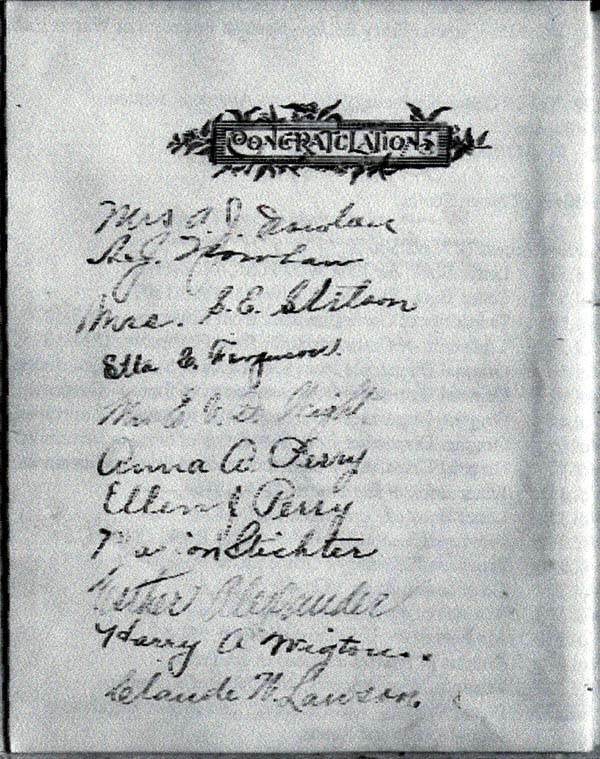 CONGRATULATIONS
Mrs A. J. Nowlan
A. J. Nowlan
Mrs. S. E. Stetson
Ella E. Ferguson
Mrs E.
Anna A. Perry
Ellen J Perry
Marion Stichter
Alexander
Harry A Wigton.
Claude W. Lawson.